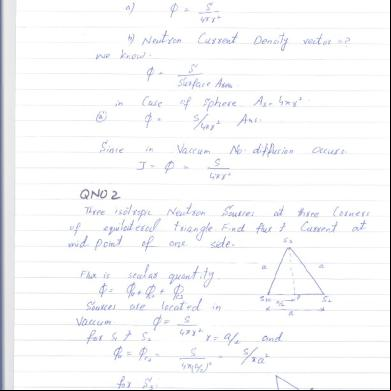 a) φ = S/4πr²
b) Neutron Current Density vector = ?
we know.
φ = S/Surface Area
in Case of sphere A = 4πr².
ⓐ φ = S/4πr² Ans.
Since in Vaccum No. diffusion occurs.
J = φ = S/4πr²
QNO 2
Three isotropic Neutron Sources at three Corners
of equilateral triangle. Find flux & Current at
mid point of one side.
S3
a a
S1 a/2 P S2
a
Flux is scalar quantity.
φ = φ1 + φ2 + φ3
Sources are located in
Vaccum φ = S/4πr²
for S1 & S2 r = a/2 and
φ1 = φ2 = S/4π(a/2)² = S/πa²
for S3